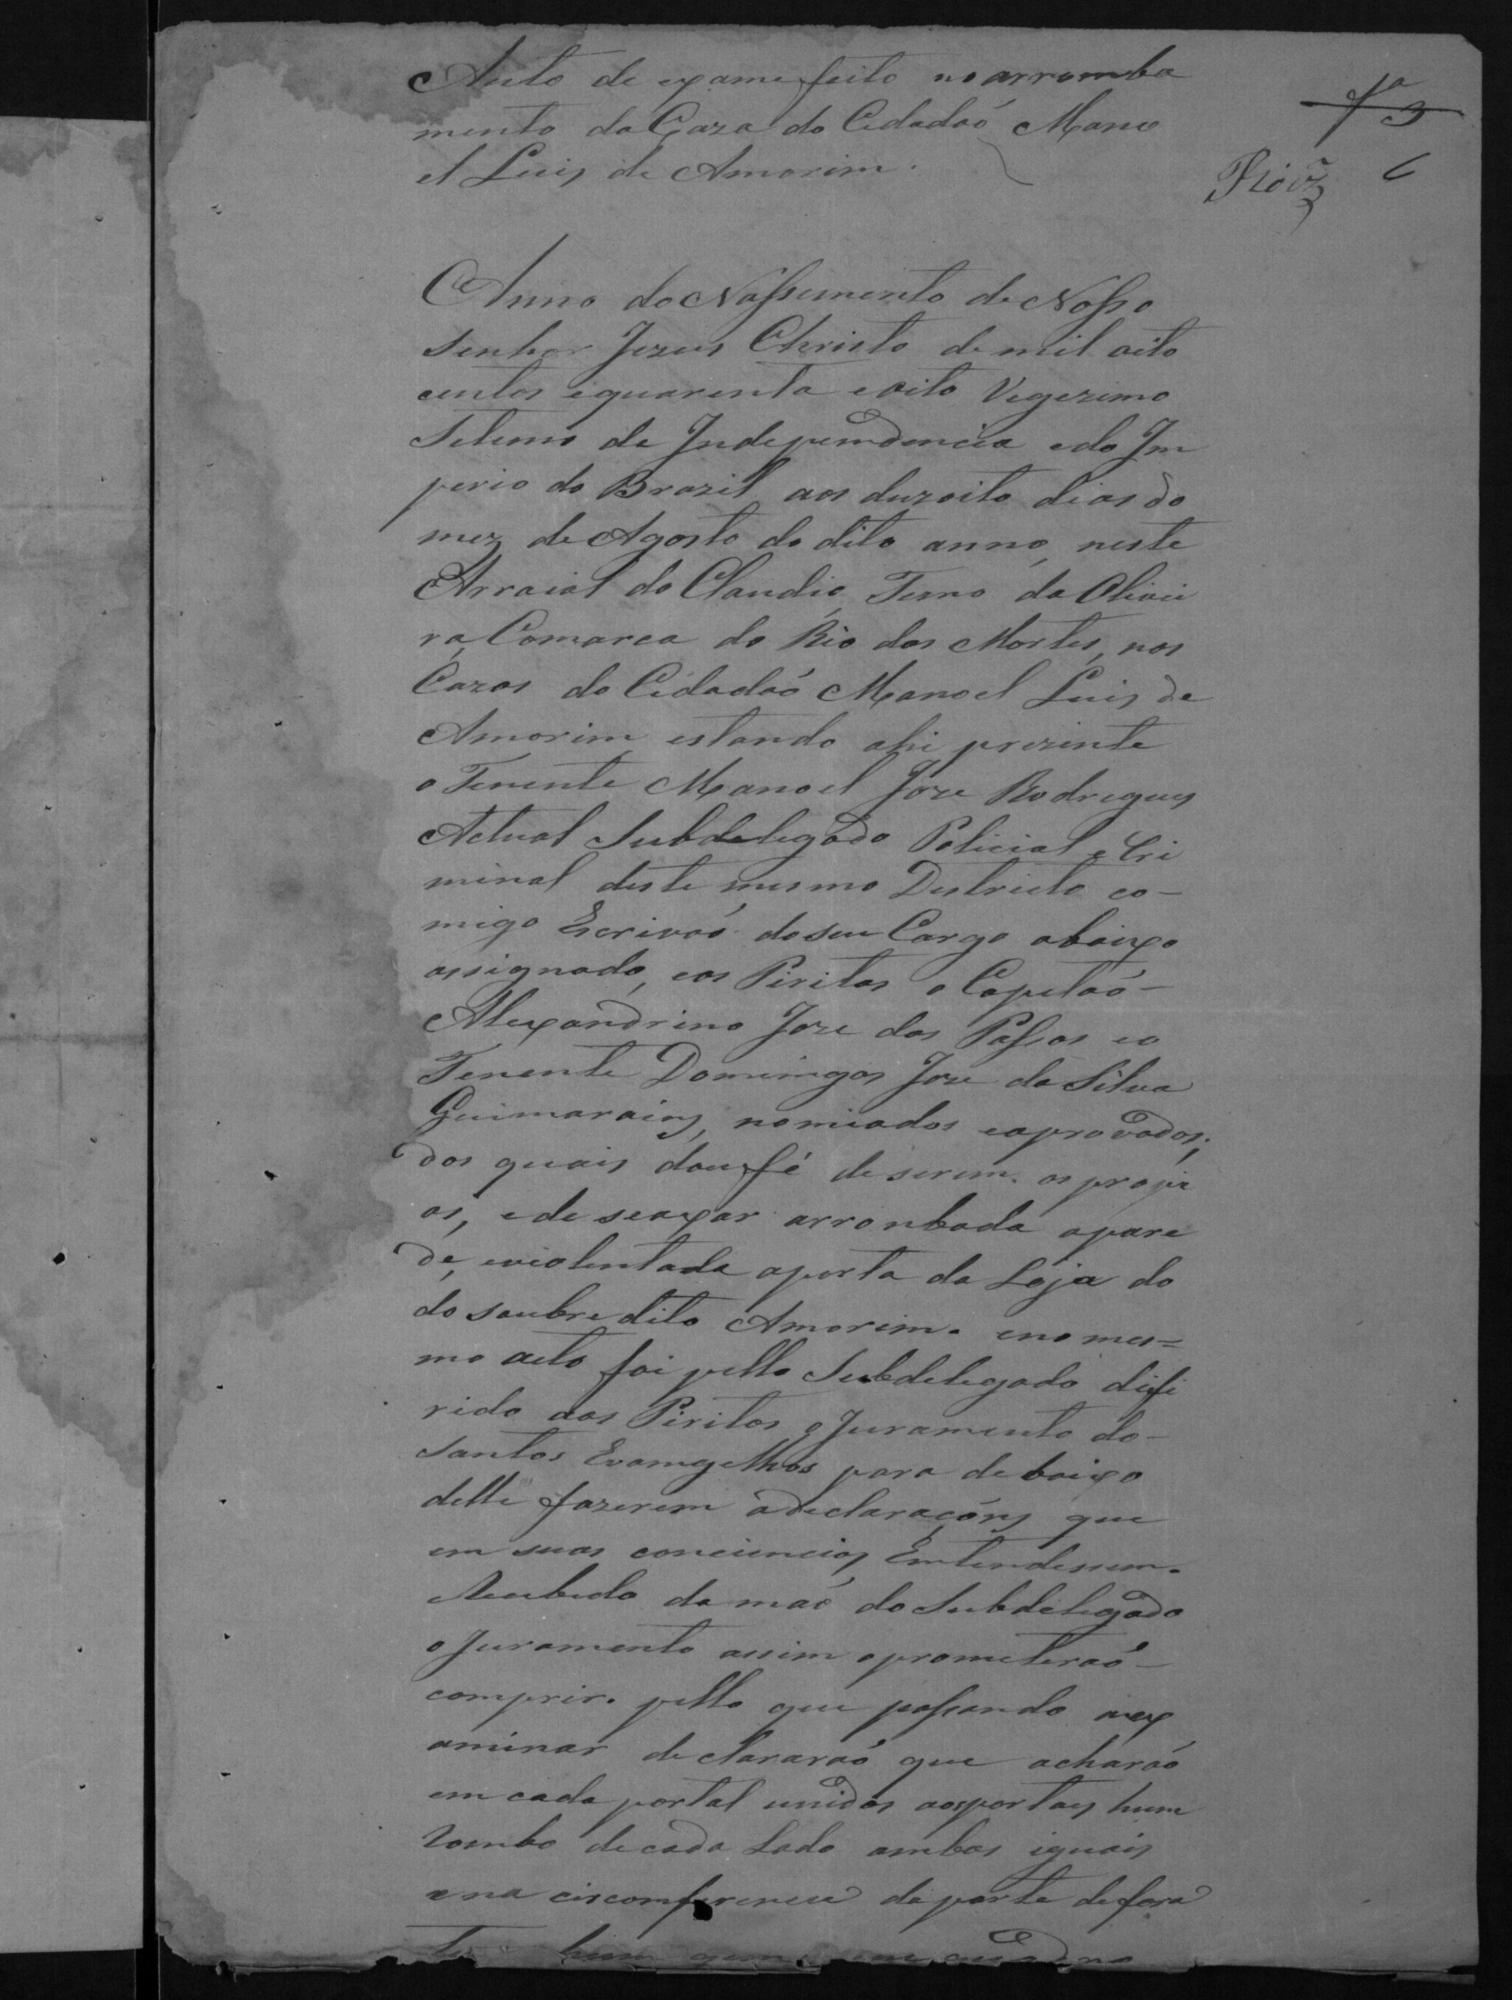 Auto de exame feito no arromba
mento da Caza do Cidadaó Mano
el Luis de Amorim.
Anno do Nassimento de Nosso
Senhor Jezus Christo de mil oito
centos e quarenta e oito Vegezimo
Setemo da Independencia e do Im
perio do Brazil aos duzoito dias do
mez de Agosto do dito anno, neste
Arraial do Claudio Termo da Olivei
ra, Comarca do Rio das Mortes, nas
Cazas do Cidadaó Manoel Luis de
Amorim estando ahi prezente
o Tenente Manoel Joze Rodregues
Actual Subdelegado Policial e Cri
minal deste mesmo Destricto co-
migo Escrivaó do seu Cargo abaixo
assignado, e os Piritos o Capetaó-
Alexandrino Joze dos Passos e o
Tenente Domingos Joze da Silva
Guimarains, nomiados e aprovados,
dos quais dou fé de serem os propi
os, e de se axar arronbada a pare
de, e violentada a porta da Loja do
do soubre dito Amorim. e no mes=
mo acto foi pello Subdelegado difi
rido aos Piritos o Juramento do-
Santos Evamgelhos para debaixo
delle fazerem a declaraçóns que
em suas conciencias Emtendessem.
Recebedo da maó do Subdelegado
o Juramento assim o prometeraó-
comprir. pello que passando a ex
aminar declararaó que acharaó
em cada portal unidos aos portais hum
Rombo de cada Lado ambos iguais
e na circomferencia da parte de fora